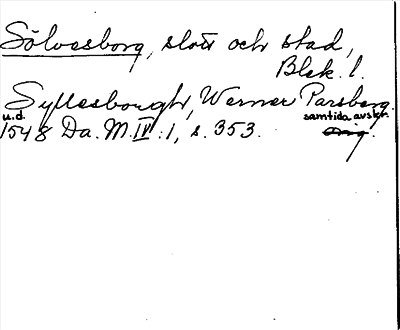 Sölvesborg, slott och stad,
Blek. l.
Syllesbourgh, Werner Parsberg.
u.d. samtida avskr.
1548 Da. M. IV:1, s. 353. Orig.